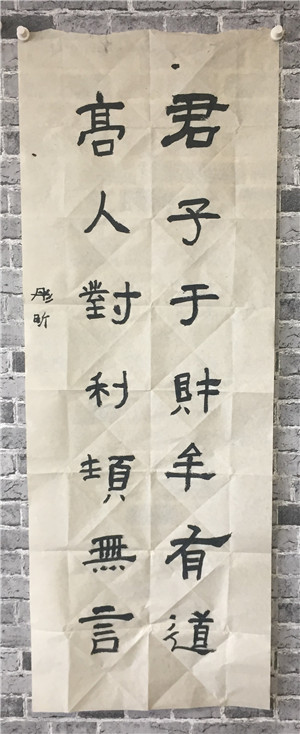 君子于財牟有道
高人對利頊無言
彤昕